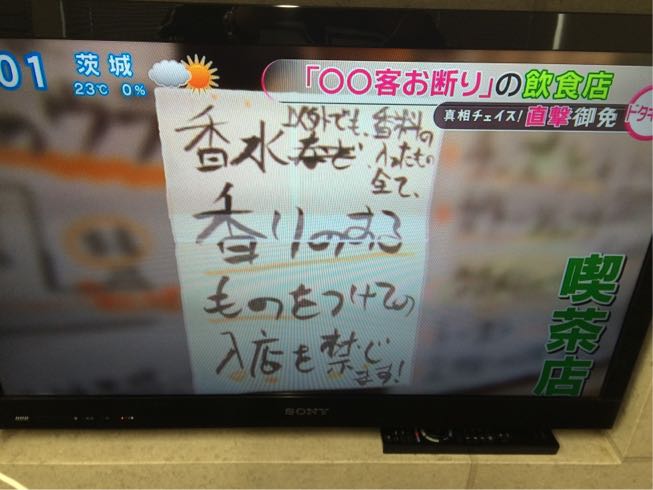 01
茨城
23℃ 0%
「〇〇客お断り」の飲食店
真相チェイス!直撃御免
ドタキ
香水など
以外でも、香料の
入ったもの
全て、
香りのする
ものをつけての
入店を禁じ
ます!
喫茶店
SONY